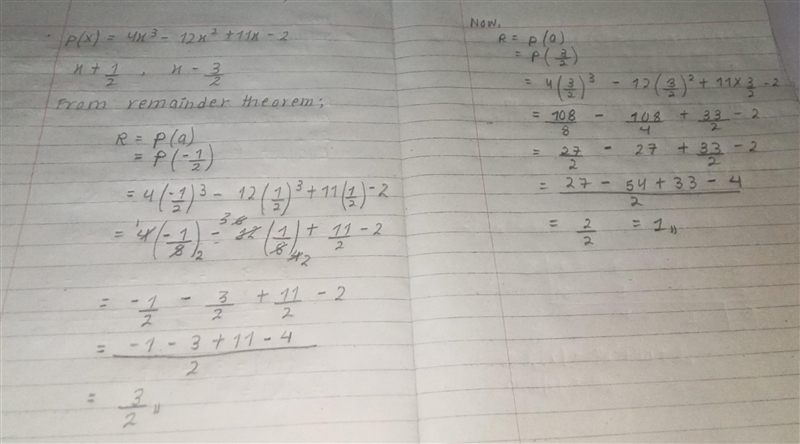 p(x) = 4x³ - 12x² + 11x - 2
x + 1/2 , x - 3/2
From remainder theorem;
R = p(a)
= P(-1/2)
= 4(-1/2)³ - 12(1/2)³ + 11(1/2) - 2
= 4(-1/8) - 12(1/8) + 11/2 - 2
= -1/2 - 3/2 + 11/2 - 2
= -1 - 3 + 11 - 4 / 2
= 3/2 ,,
Now,
R = p(a)
= P(3/2)
= 4(3/2)³ - 12(3/2)² + 11 × 3/2 - 2
= 108/8 - 108/4 + 33/2 - 2
= 27/2 - 27 + 33/2 - 2
= 27 - 54 + 33 - 4 / 2
= 2/2 = 1 ,,